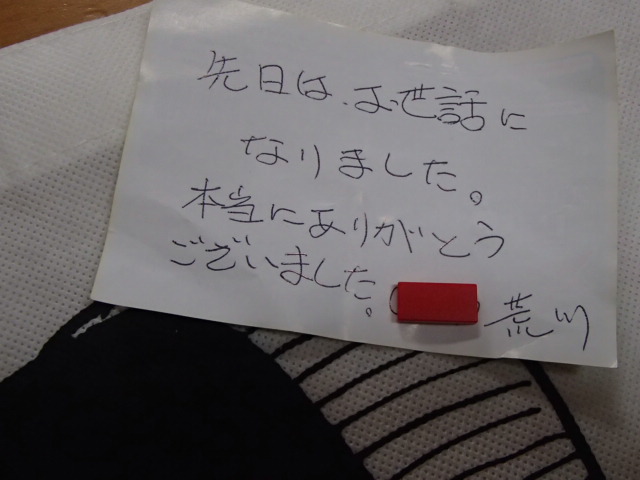 先日は、お世話に
なりました。
本当にありがとう
ございました。
荒川